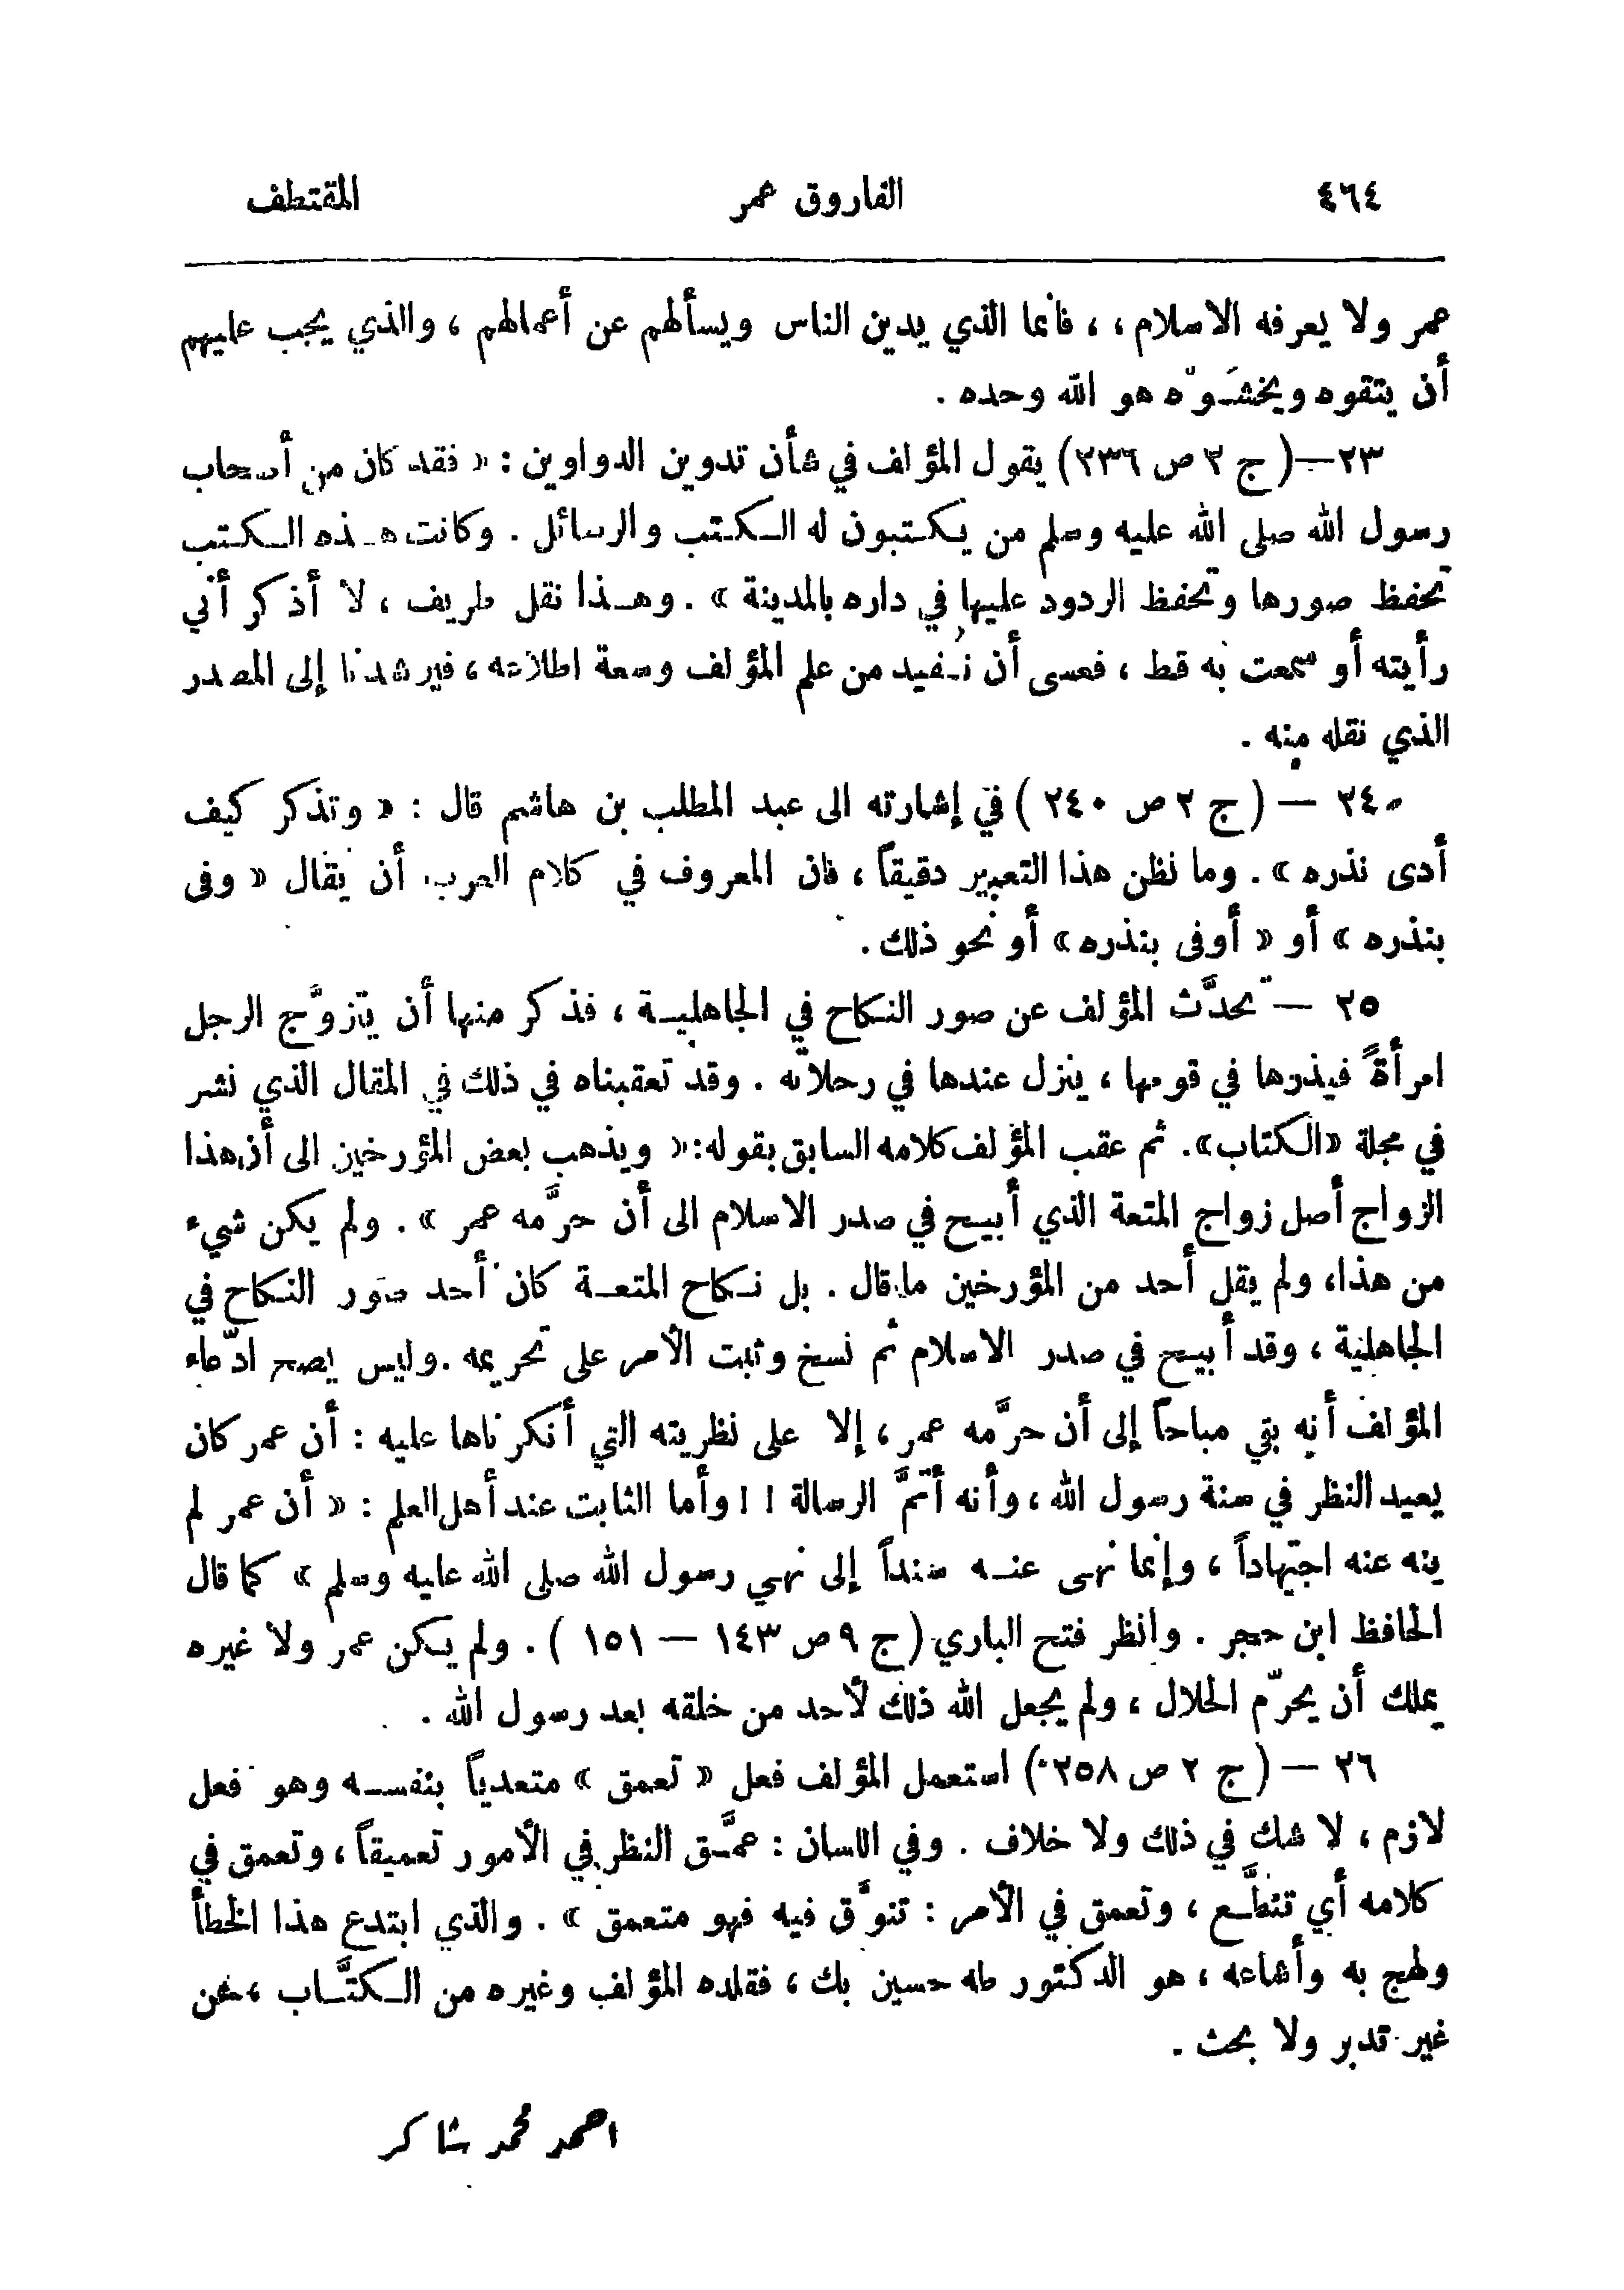 ٤٦٤ الفاروق عمر المقتطف
عمر ولا يعرفه الاسلام ، ، فانما الذي يدين الناس ويسألهم عن أعمالهم ، والذي يجب عليهم
أن يتقوه ويخشَوْه هو الله وحده .
٢٣—( ج ٢ ص ٢٣٦) يقول المؤلف في شأن تدوين الدواوين : « فقد كان من أصحاب
رسول الله صلى الله عليه وسلم من يكتبون له الكتب والرسائل . وكانت هذه الكتب
تحفظ صورها وتحفظ الردود عليها في داره بالمدينة » . وهذا نقل طريف ، لا أذكر أني
رأيته أو سمعت به قط ، فعسى أن نفيد من علم المؤلف وسعة اطلاعه ، فيرشدنا إلى المصدر
الذي نقله منه .
٢٤ — ( ج ٢ ص ٢٤٠ ) في إشارته الى عبد المطلب بن هاشم قال : « وتذكر كيف
أدى نذره » . وما نظن هذا التعبير دقيقاً ، فان المعروف في كلام العرب أن يقال « وفى
بنذره » أو « أوفى بنذره » أو نحو ذلك .
٢٥ — تحدَّث المؤلف عن صور النكاح في الجاهلية ، فذكر منها أن يتزوَّج الرجل
امرأةً فيذرها في قومها ، ينزل عندها في رحلاته . وقد تعقبناه في ذلك في المقال الذي نشر
في مجلة «الكتاب». ثم عقب المؤلف كلامه السابق بقوله: « ويذهب بعض المؤرخين الى أن هذا
الزواج أصل زواج المتعة الذي أبيح في صدر الاسلام الى أن حرَّمه عمر » . ولم يكن شيء
من هذا، ولم يقل أحد من المؤرخين ما قال . بل نكاح المتعة كان أحد صور النكاح في
الجاهلية ، وقد أبيح في صدر الاسلام ثم نسخ وثبت الأمر على تحريمه .وليس يصح ادّعاء
المؤلف أنه بقي مباحاً إلى أن حرَّمه عمر ، إلا على نظريته التي أنكرناها عليه : أن عمر كان
يعيد النظر في سنة رسول الله ، وأنه أتمَّ الرسالة ! ! وأما الثابت عند أهل العلم : « أن عمر لم
ينه عنه اجتهاداً ، وإنما نهى عنه سنداً إلى نهي رسول الله صلى الله عليه وسلم » كما قال
الحافظ ابن حجر . وانظر فتح الباري ( ج ٩ ص ١٤٣ — ١٥١ ) . ولم يكن عمر ولا غيره
يملك أن يحرّم الحلال ، ولم يجعل الله ذلك لأحد من خلقه بعد رسول الله .
٢٦ — ( ج ٢ ص ٢٥٨ ) استعمل المؤلف فعل « تعمق » متعدياً بنفسه وهو فعل
لازم ، لا شك في ذلك ولا خلاف . وفي اللسان : عمَّق النظر في الأمور تعميقاً ، وتعمق في
كلامه أي تنطَّع ، وتعمق في الأمر : تنوَّق فيه فهو متعمق » . والذي ابتدع هذا الخطأ
ولهج به وأشاعه ، هو الدكتور طه حسين بك ، فقلده المؤلف وغيره من الكتَّاب ، عن
غير تدبر ولا بحث .
احمد محمد شاكر